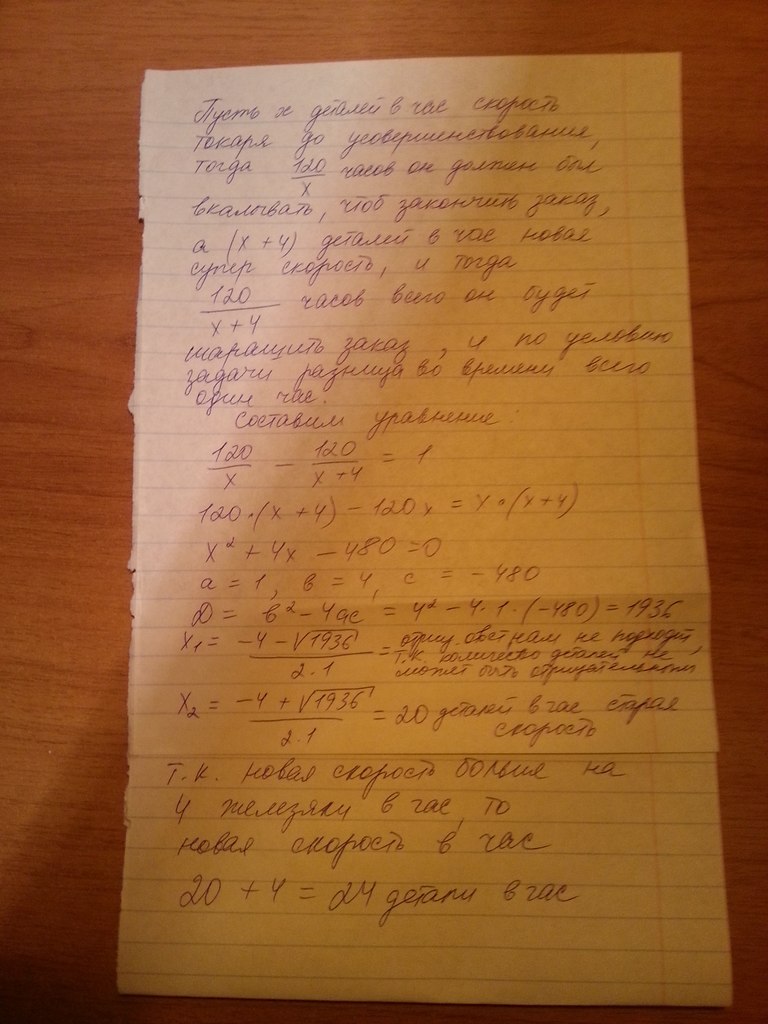 Пусть x деталей в час скорость
токаря до усовершенствования,
тогда 120/x часов он должен был
вкалывать, чтоб закончить заказ,
а (x + 4) деталей в час новая
супер скорость, и тогда
120/(x + 4) часов всего он будет
шаращить заказ, и по условию
задачи разница во времени всего
один час.
Составим уравнение:
120/x - 120/(x + 4) = 1
120·(x + 4) - 120x = x·(x + 4)
x² + 4x - 480 = 0
a = 1, в = 4, c = -480
D = в² - 4ac = 4² - 4·1·(-480) = 1936
x₁ = (-4 - √1936)/(2·1) = отриц. овет нам не подходит,
т.к. количество деталей не
может быть отрицательным
x₂ = (-4 + √1936)/(2·1) = 20 деталей в час старая
скорость
т.к. новая скорость больше на
4 железяки в час, то
новая скорость в час
20 + 4 = 24 детали в час